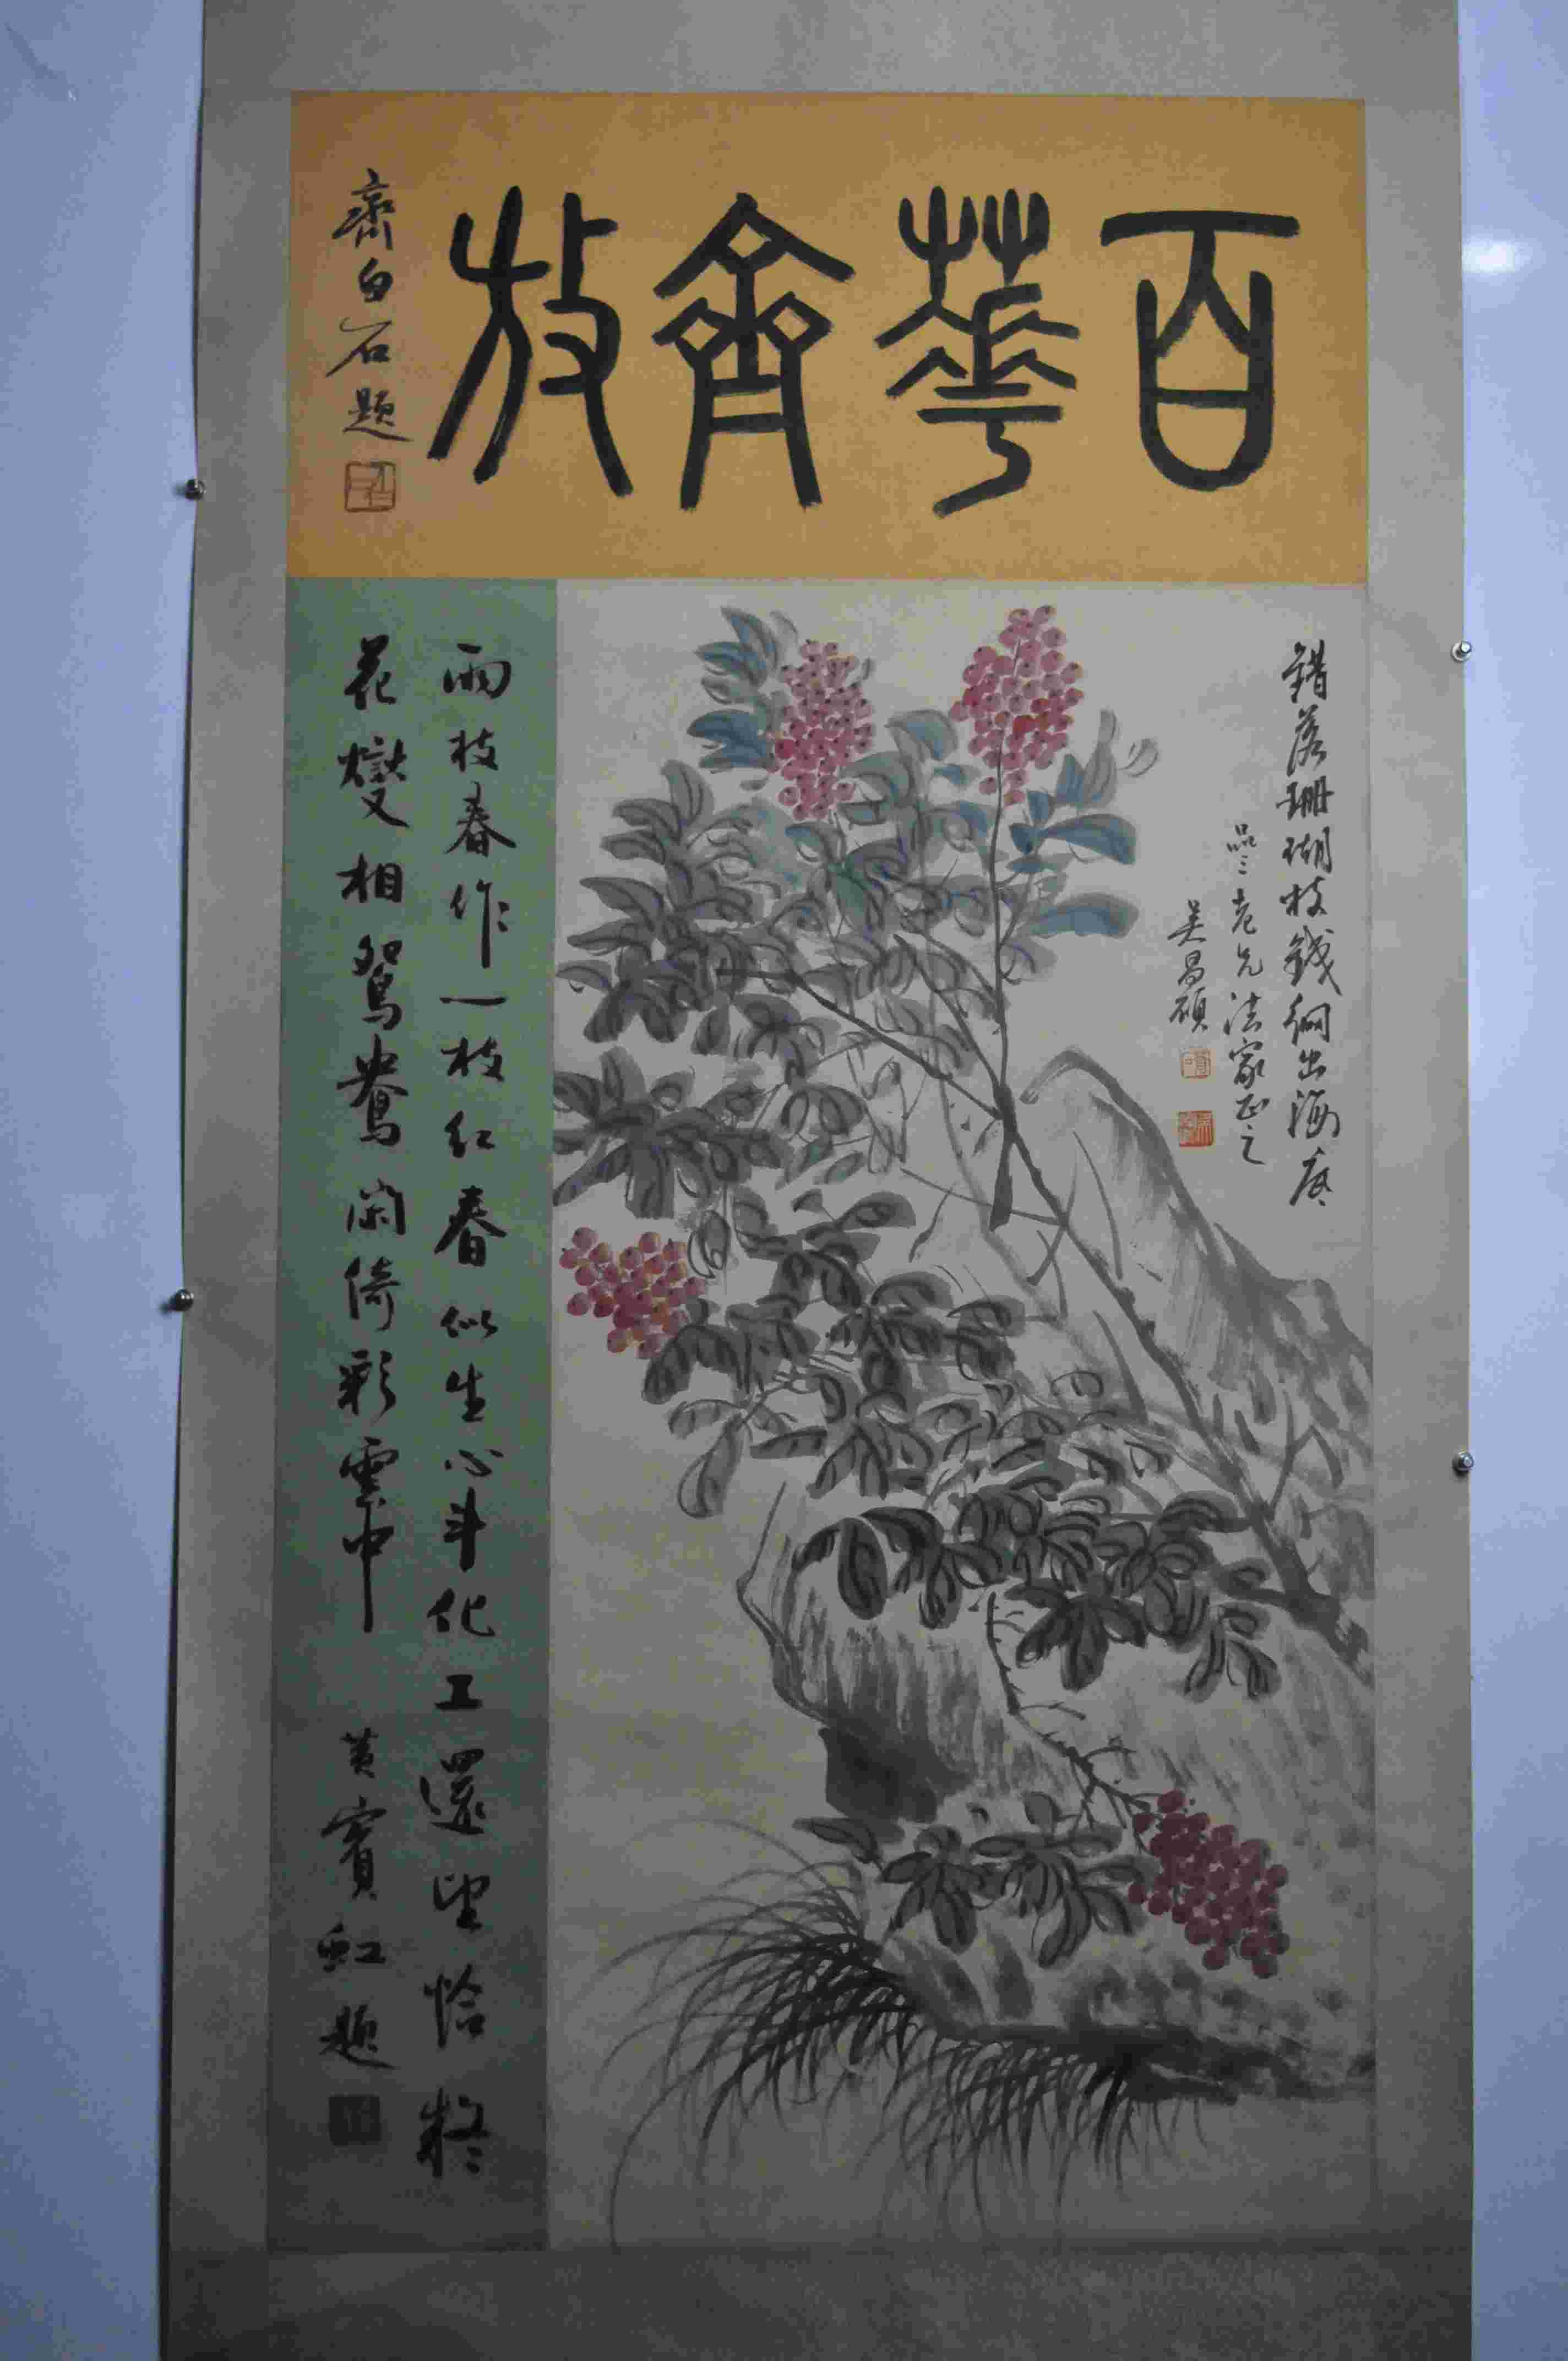 百華齊放
齊白石題
錯落珊瑚枝鐵網出海底
品三老兄法家正之
吳昌碩
兩枝春作一枝紅春似生心斗化工還望恰
花燮相鴛鴦閑倚彩雲中
黃賓虹題